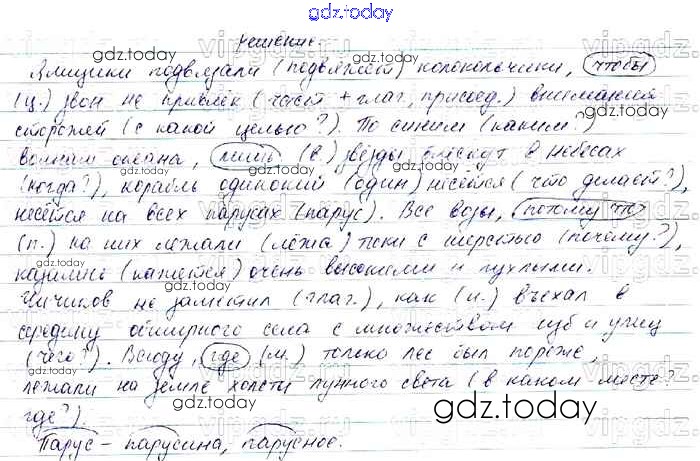 gdz.today
Решение.
Ямщики подвязали (подвяжет) колокольчики, чтобы
(ц.) звон не привлёк (част + глаг, присоед.) внимания
сторожей (с какой целью?). По синим (каким?)
волнам океана, лишь (в.) звёзды блеснут в небесах
(когда?), корабль одинокий (один) несётся (что делает?),
несётся на всех парусах (парус). Все возы, потому что
(п.) на них лежали (лёжа) тюки с шерстью (почему?),
казались (кажется) очень высокими и пухлыми.
Чичиков не заметил (глаг.), как (и.) въехал в
середину обширного села с множеством изб и улиц
(чего?). Всюду, где (м.) только лес был пореже,
лежали на земле холсты лунного света (в каком месте?
где?).
Парус – парусина, парусное.
gdz.today